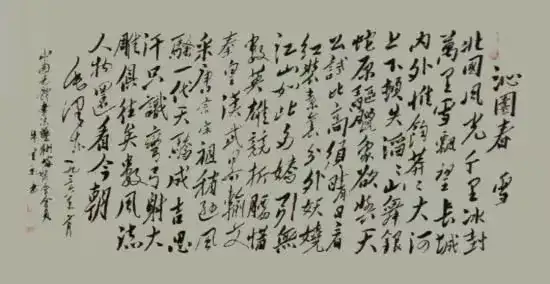 沁園春 雪
北國風光千里冰封
萬里雪飄望長城
内外惟餘莽〻大河
上下頓失滔〻山舞銀
蛇原驅臘象欲與天
公試比高須晴日看
紅裝素裹分外妖嬈
江山如此多嬌引無
數英雄競折腰惜
秦皇漢武略輸文
采唐宗宋祖稍遜風
騷一代天驕成吉思
汗只識彎弓射大
雕俱往矣數風流
人物還看今朝
毛澤东 一九三六年二月